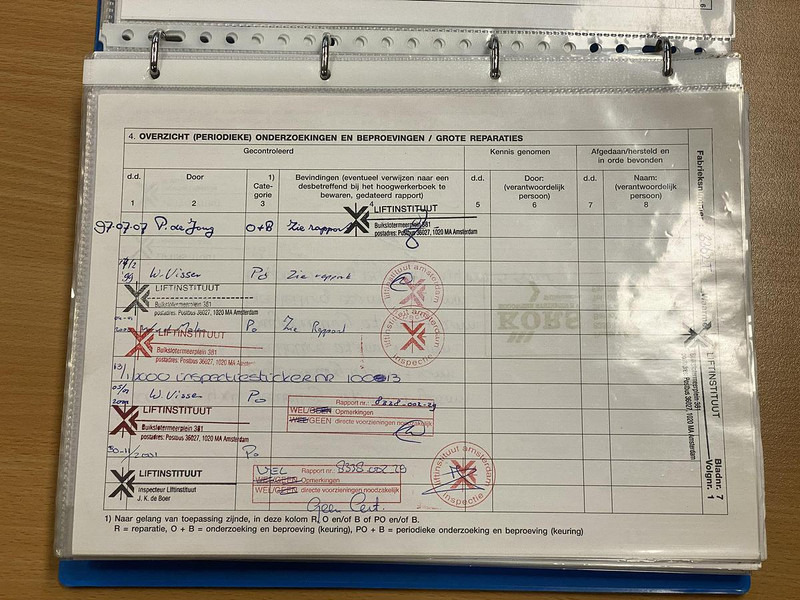 4. OVERZICHT (PERIODIEKE) ONDERZOEKINGEN EN BEPROEVINGEN / GROTE REPARATIES
Gecontroleerd
Kennis genomen
Afgedaan/hersteld en in orde bevonden
d.d.
Door
1) Cate-gorie
Bevindingen (eventueel verwijzen naar een desbetreffend bij het hoogwerkerboek te bewaren, gedateerd rapport)
d.d.
Door: (verantwoordelijk persoon)
d.d.
Naam: (verantwoordelijk persoon)
1 2 3 4 5 6 7 8
97-07-07 P. de Jong O+B Zie rapport
LIFTINSTITUUT
Buikslotermeerplein 381
postadres: Postbus 36027, 1020 MA Amsterdam
W. Visser Po Zie rapport
liftinstituut amsterdam
LIFTINSTITUUT
Buikslotermeerplein 381
postadres: Postbus 36027, 1020 MA Amsterdam
Po Zie Rapport
liftinstituut amsterdam
inspectie
LIFTINSTITUUT
Buikslotermeerplein 381
postadres: Postbus 36027, 1020 MA Amsterdam
13/1 2000 inspectiestickernr 100613
W. Visser Po
Rapport nr.: 8228-002-29
WEL/GEEN Opmerkingen
WEL/GEEN directe voorzieningen noodzakelijk
LIFTINSTITUUT
Buikslotermeerplein 381
postadres: Postbus 36027, 1020 MA Amsterdam
30-11/2001 Po
WEL Rapport nr.: 8338-002-29
WEL/GEEN Opmerkingen
WEL/GEEN directe voorzieningen noodzakelijk
Geen Cert.
liftinstituut amsterdam
inspectie
LIFTINSTITUUT
inspecteur Liftinstituut
J. K. de Boer
1) Naar gelang van toepassing zijnde, in deze kolom R, O en/of B of PO en/of B.
R = reparatie, O + B = onderzoeking en beproeving (keuring), PO + B = periodieke onderzoeking en beproeving (keuring)
LIFTINSTITUUT
Buikslotermeerplein 381
postadres: Postbus 36027, 1020 MA Amsterdam
Bladnr. 7
Volgnr. 1
6